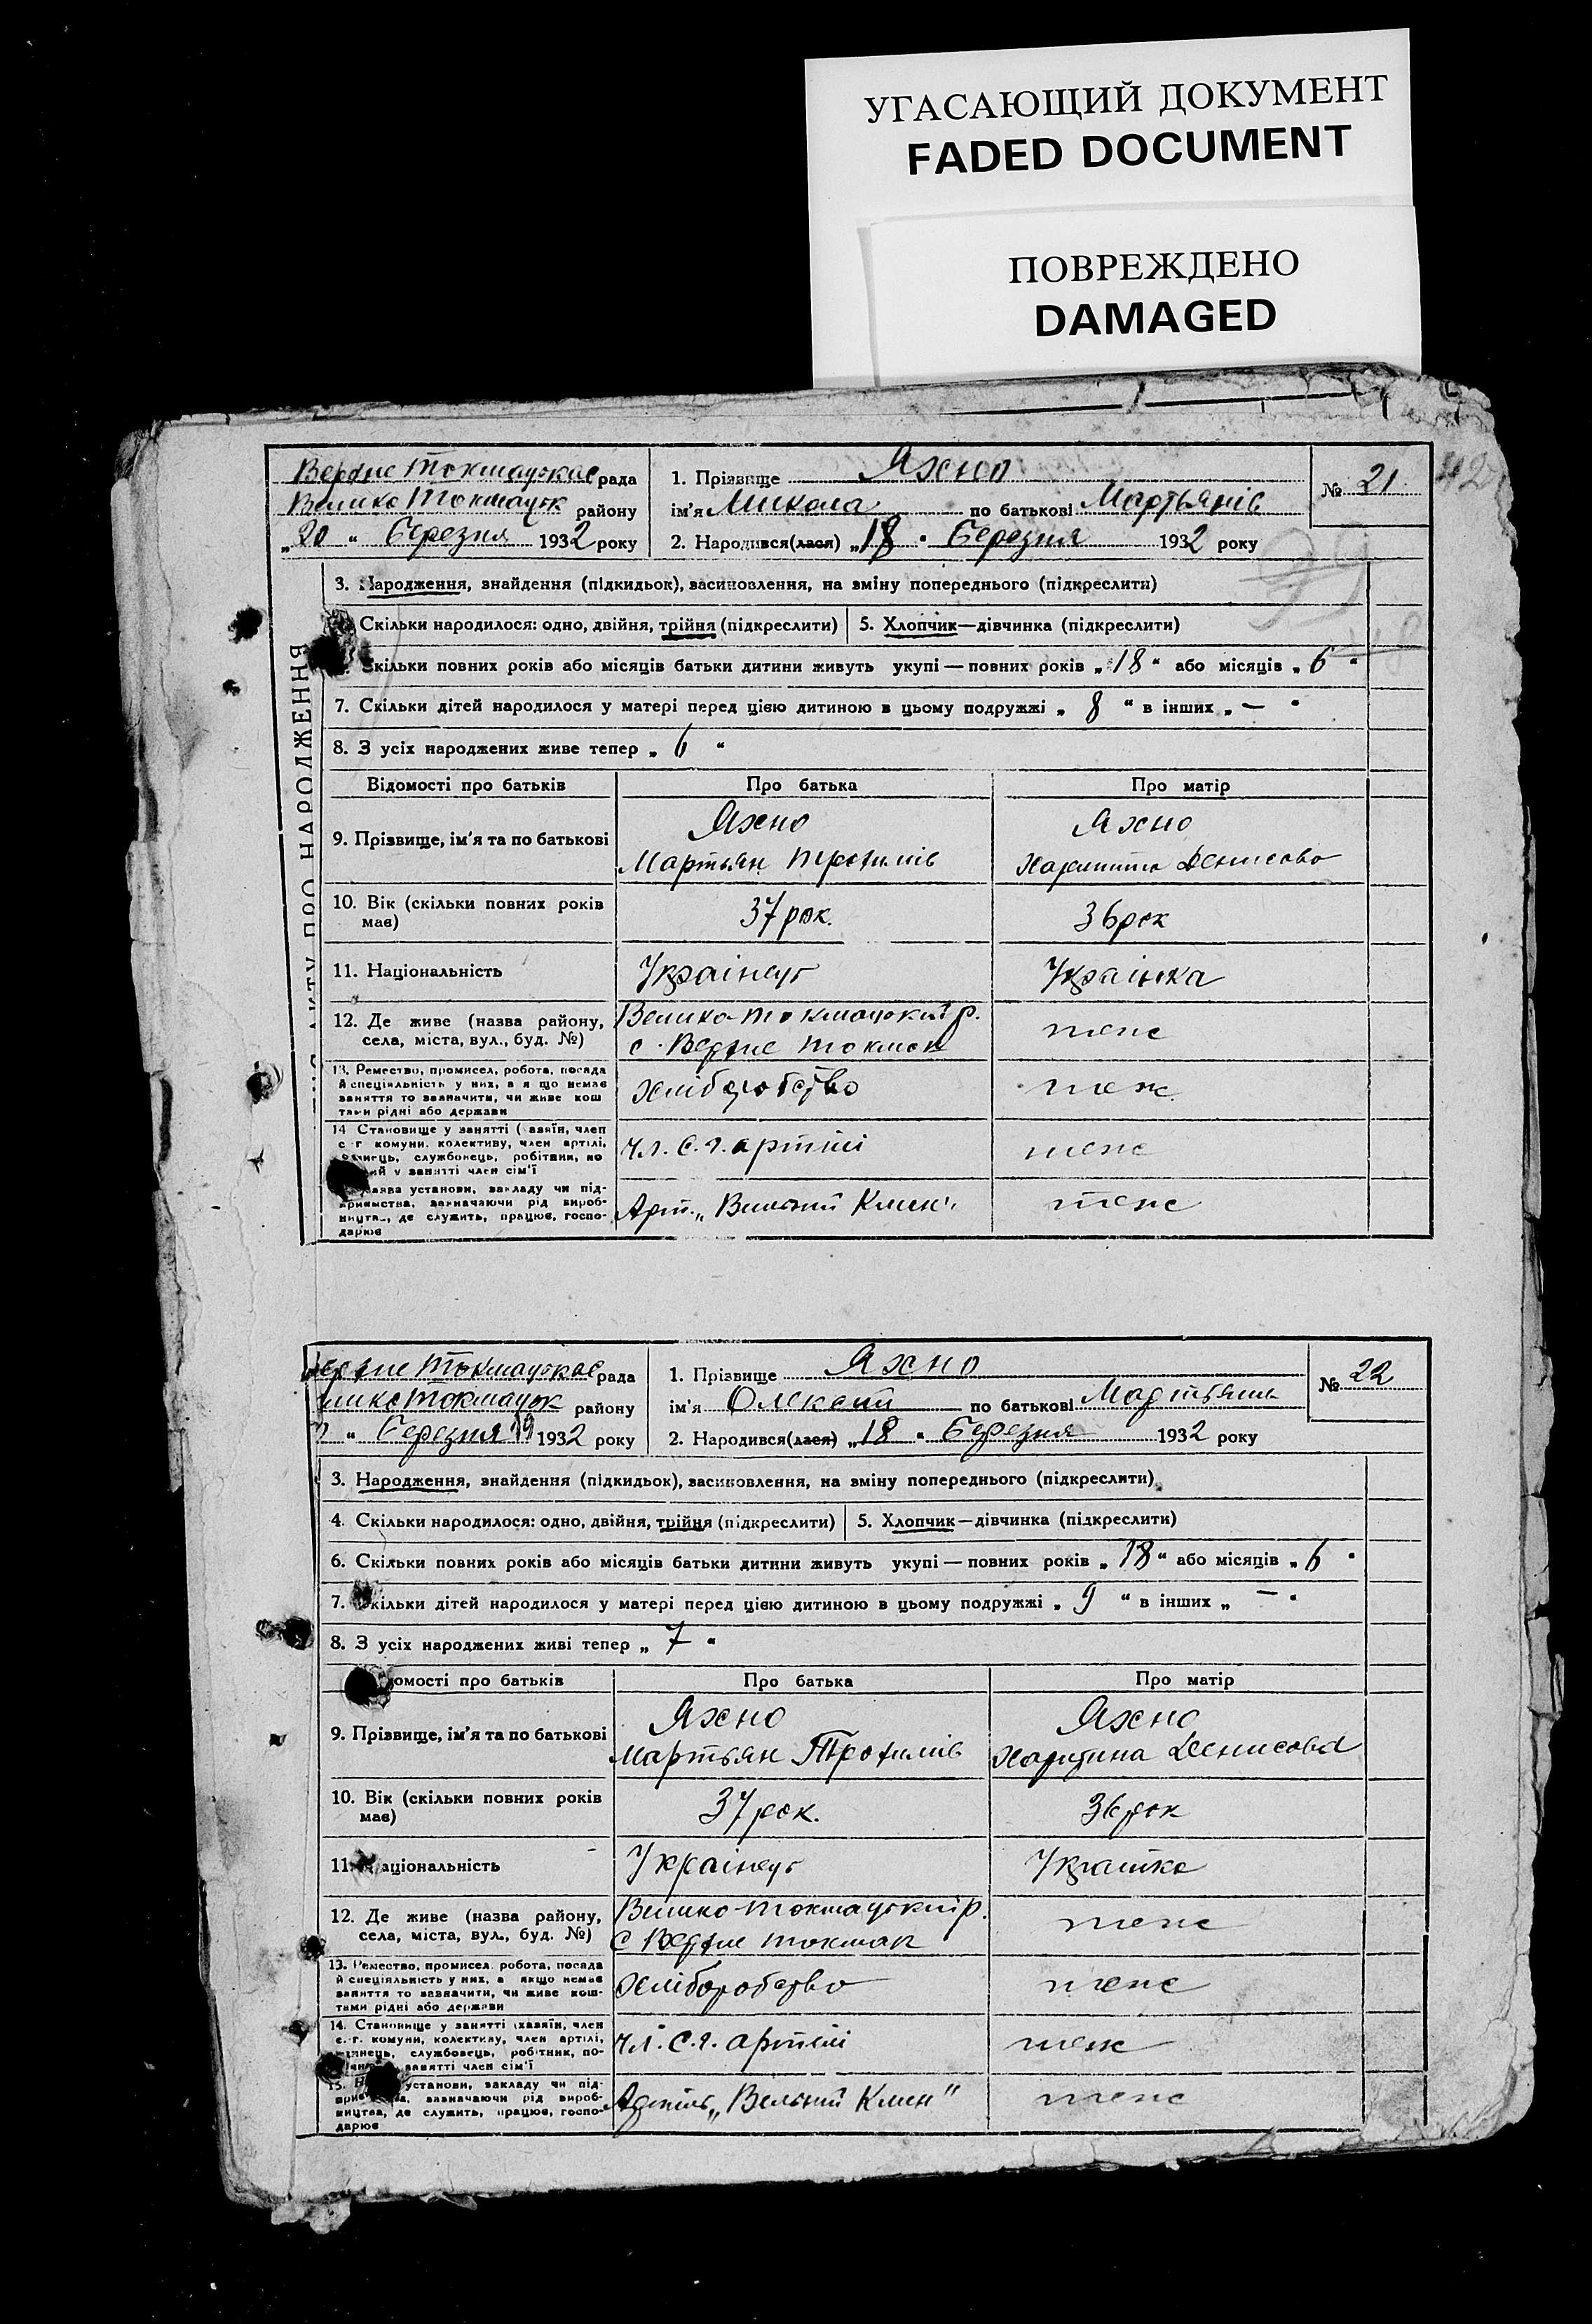 УГАСАЮЩИЙ ДОКУМЕНТ
FADED DOCUMENT
ПОВРЕЖДЕНО
DAMAGED
Верхне Токмацкая рада
Велико Токмацьк району
„20 “ Березня 1932 року
1. Прізвище Яхно
ім'я Микола по батькові Мартьянів
2. Народився(лася) „18 “ Березня 1932 року
№ 21
42
ПРО НАРОДЖЕННЯ
3. Народження, знайдення (підкидьок), засиновлення, на зміну попереднього (підкреслити)
Скільки народилося: одно, двійня, трійня (підкреслити) 5. Хлопчик—дівчинка (підкреслити)
кільки повних років або місяців батьки дитини живуть укупі — повних років „18“ або місяців „6“
7. Скільки дітей народилося у матері перед цією дитиною в цьому подружжі „8“ в інших „—“
8. З усіх народжених живе тепер „6“
Відомості про батьків Про батька Про матір
9. Прізвище, ім'я та по батькові
Яхно
Мартьян Трофимів
Яхно
Денисова
10. Вік (скільки повних років
має)
37 рок.
36 рок
11. Національність Українець Українка
12. Де живе (назва району,
села, міста, вул., буд. №)
Велико-Токмацький р.
с. Верхне Токмак
теж
13. Ремество, промисел, робота, посада
й спеціяльність у них, а я що немає
заняття то зазначити, чи живе кош
тами рідні або держави
хліборобство
теж
14 Становище у занятті (хазяїн, член
с.-г. комуни, колективу, член артілі,
службовець, робітник, по
ий у занятті член сім'ї
чл. с.г. артілі
теж
установи, закладу чи під-
приємства, зазначаючи рід вироб-
ництва, де служить, працює, госпо-
дарює
Арт. „Вільний Клин“
теж
Верхне Токмацкая рада
Токмацьк району
“ Березня 1932 року
1. Прізвище Яхно
ім'я Олексій по батькові
2. Народився(лася) „18 “ Березня 1932 року
№ 22
3. Народження, знайдення (підкидьок), засиновлення, на зміну попереднього (підкреслити)
4. Скільки народилося: одно, двійня, трійня (підкреслити) 5. Хлопчик—дівчинка (підкреслити)
6. Скільки повних років або місяців батьки дитини живуть укупі — повних років „18“ або місяців „6“
7. Скільки дітей народилося у матері перед цією дитиною в цьому подружжі „9“ в інших „—“
8. З усіх народжених живі тепер „7“
омості про батьків Про батька Про матір
9. Прізвище, ім'я та по батькові
Яхно
Мартьян Трофимів
Яхно
Харитина Денисова
10. Вік (скільки повних років
має)
37 рок.
36 рок
11. аціональність Українець Українка
12. Де живе (назва району,
села, міста, вул., буд. №)
Велико-Токмацький р.
с Верхне Токмак
теж
13. Ремество, промисел, робота, посада
й спеціяльність у них, а якщо немає
заняття то зазначити, чи живе кош-
тами рідні або держави
хліборобство
теж
14. Становище у занятті (хазяїн, член
с.-г. комуни, колективу, член артілі,
службовець, робітник, по-
занятті член сім'ї
чл. с.г. артілі
теж
15. установи, закладу чи під-
зазначаючи рід вироб-
ництва, де служить, працює, госпо-
дарює
Артіль „Вільний Клин“
теж